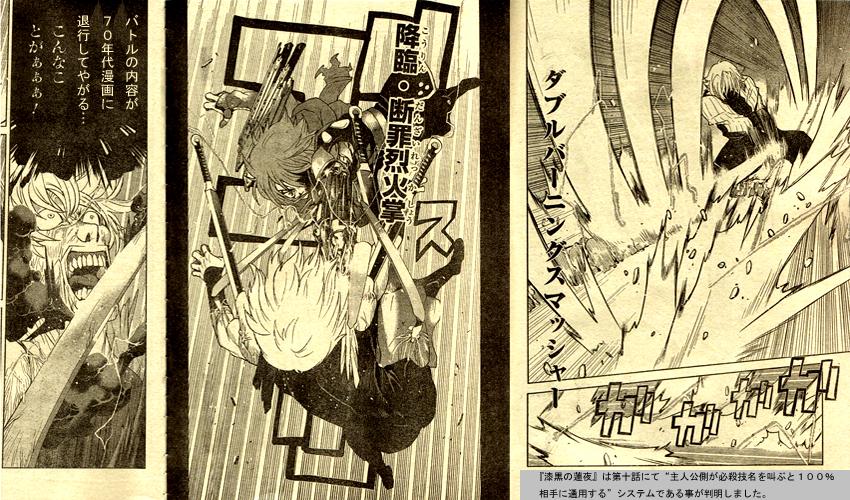 ダブルバーニングスマッシャー
ガガガガ
『漆黒の蓮夜』は第十話にて“主人公側が必殺技名を叫ぶと１００％
相手に通用する”システムである事が判明しました。
降臨・断罪烈火掌
こうりん だんざいれっかしょう
ス
バトルの内容が
７０年代漫画に
退行してやがる…
こんなこ
とがぁぁぁ！